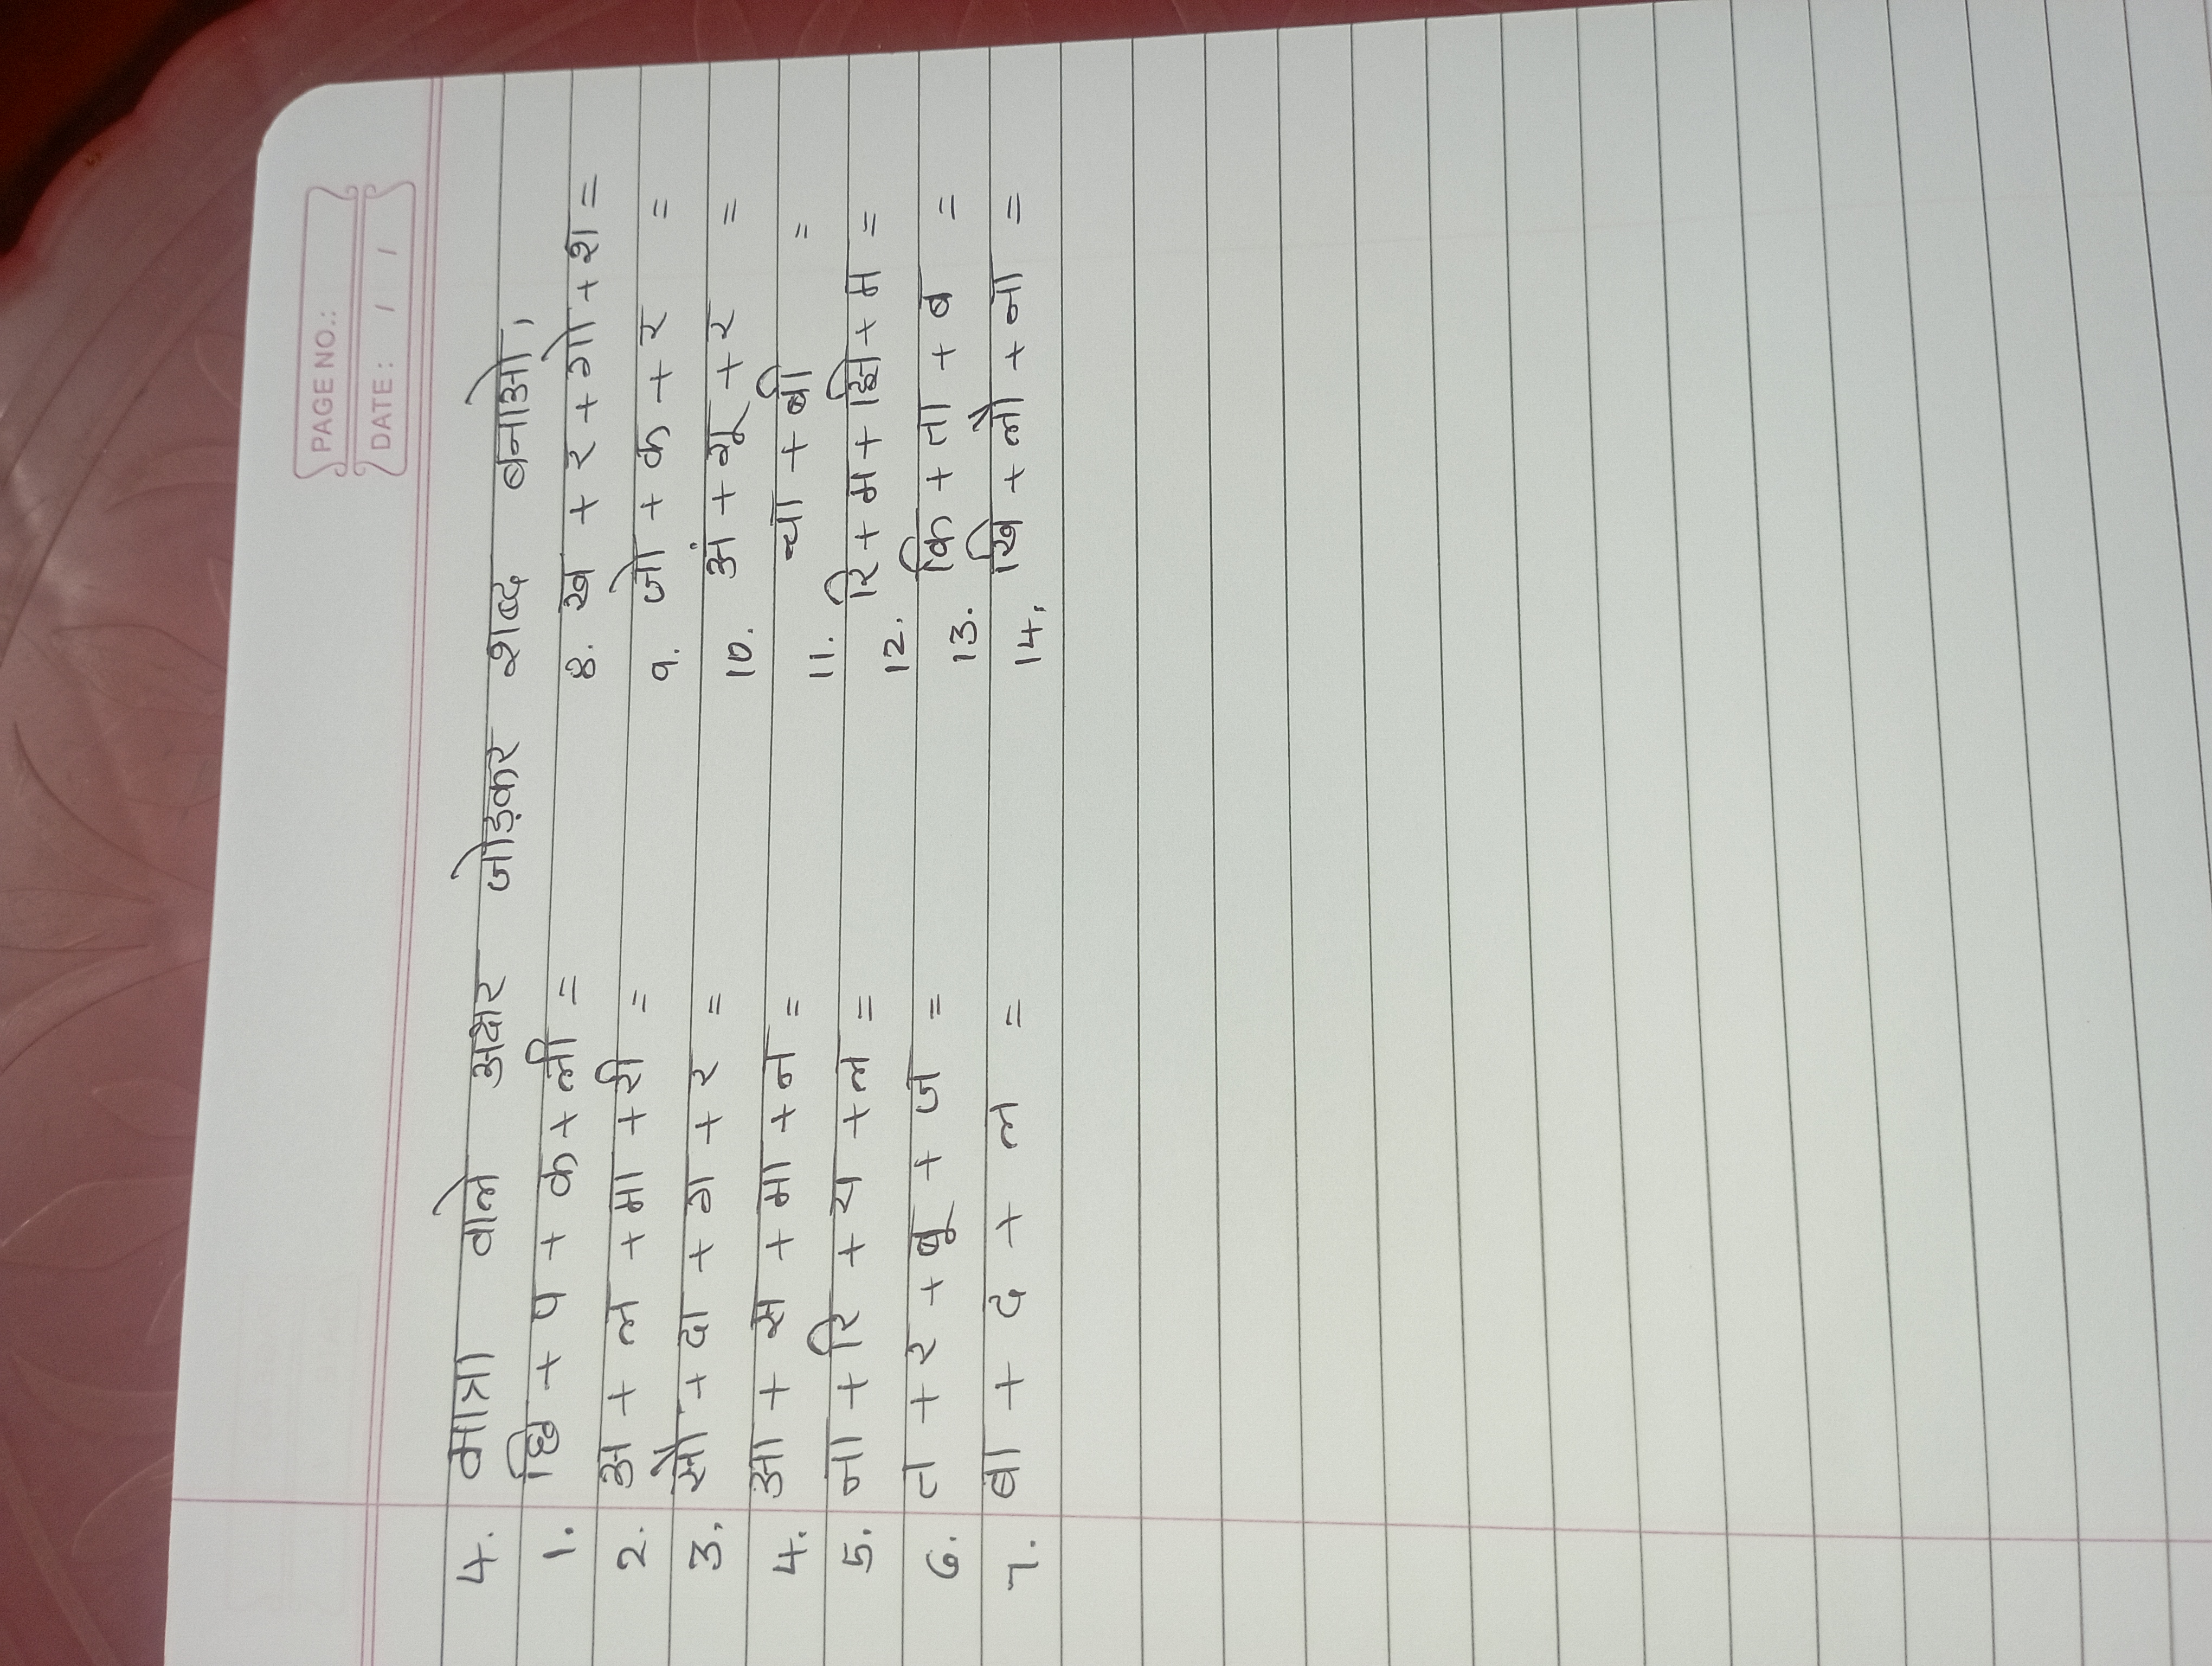 PAGE NO.:
DATE: / /
4. मात्रा वाले अक्षर जोड़कर शब्द बनाओ,
1. छि + प + क + ली = 8. ख + र + गो + श =
2. अ + ल + मा + री = 9. जो + क + र =
3. सौ + दा + ग + र = 10. अं + गू + र =
4. आ + स + मा + न = 11. चा + बी =
5. ना + रि + य + ल = 12. रि + म + झि + म =
6. त + र + बू + ज = 13. कि + ता + ब =
7. बा + द + ल = 14. खि + लौ + ना =